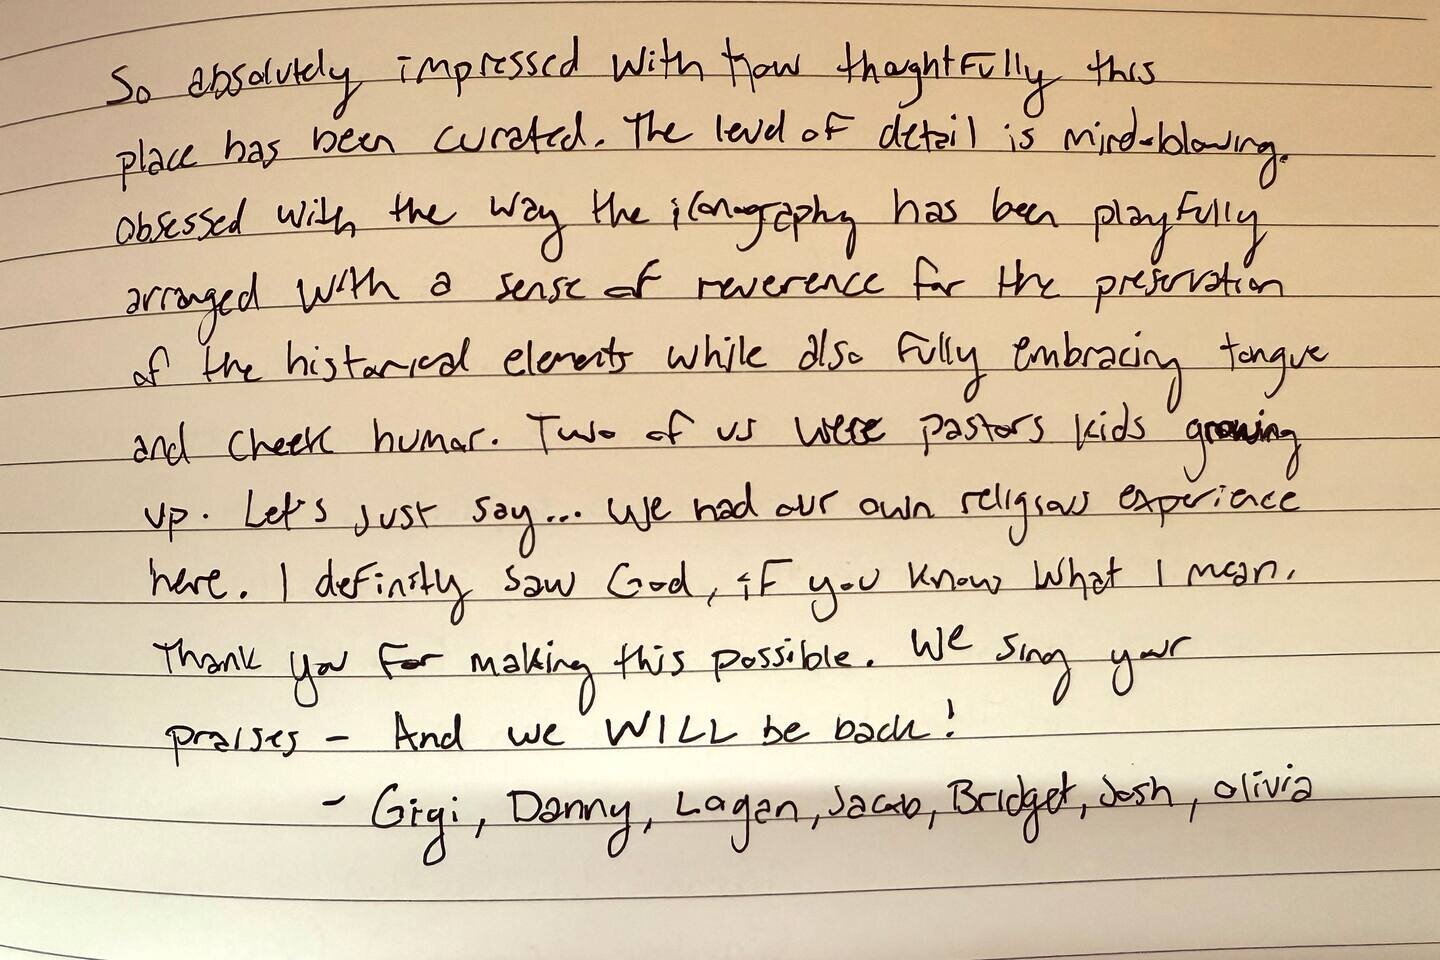 So absolutely impressed with how thoghtfully this
place has been curated. The level of detail is mind-blowing.
Obsessed with the way the iconography has been playfully
arranged with a sense of reverence for the preservation
of the historical elements while also fully embracing tongue
and cheek humor. Two of us were pastors kids growing
up. Let's just say... We had our own religious experience
here. I definitly saw God, if you know what I mean.
Thank you for making this possible. We sing your
praises - And we WILL be back!
- Gigi, Danny, Logan, Jacob, Bridget, Josh, Olivia